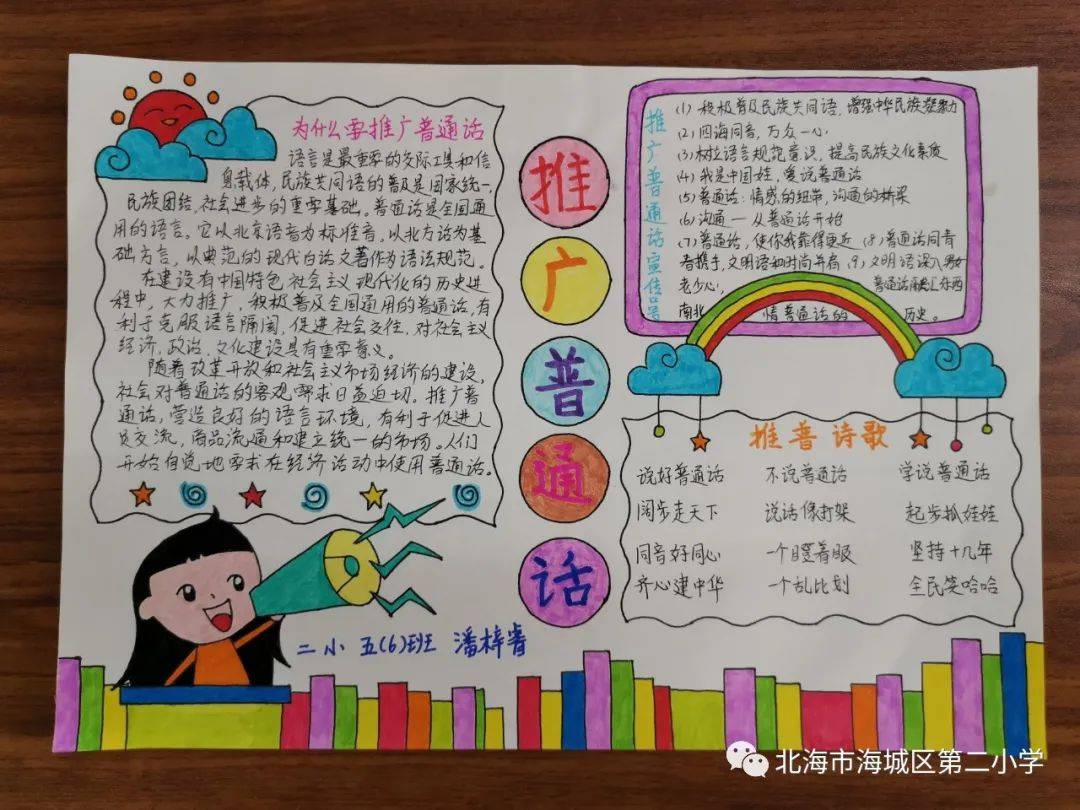 为什么要推广普通话
语言是最重要的交际工具和信
息载体,民族共同语的普及是国家统一,
民族团结,社会进步的重要基础。普通话是全国通
用的语言。它以北京语音为标准音,以北方话为基
础方言,以典范的现代白话文著作为语法规范。
在建设有中国特色社会主义现代化的历史进
程中,大力推广、积极普及全国通用的普通话,有
利于克服语言隔阂,促进社会交往,对社会主义
经济、政治、文化建设具有重要意义。
随着改革开放和社会主义市场经济的建设,
社会对普通话的客观需求日益迫切。推广普
通话,营造良好的语言环境,有利于促进人
员交流,商品流通和建立统一的市场。人们
开始自觉地要求在经济活动中使用普通话。
二小 五(6)班 潘梓
推
广
普
通
话
推广普通话宣传
(1) 积极普及民族共同语,增强中华民族凝聚力
(2) 四海同音,万众一心
(3) 树立语言规范意识,提高民族文化素质
(4) 我是中国娃,爱说普通话
(5) 普通话:情感的纽带,沟通的桥梁
(6) 沟通——从普通话开始
(7) 普通话,使你我靠得更近 (8) 普通话同
携手,文明语和时尚并肩 (9) 文明语深入男女
老少心, 普通话 汇东西
南北 情 普通话的 历史。
推普诗歌
说好普通话 不说普通话 学说普通话
阔步走天下 说话像打架 起步抓娃娃
同音好同心 一个瞪着眼 坚持十几年
齐心建中华 一个乱比划 全民笑哈哈
北海市海城区第二小学